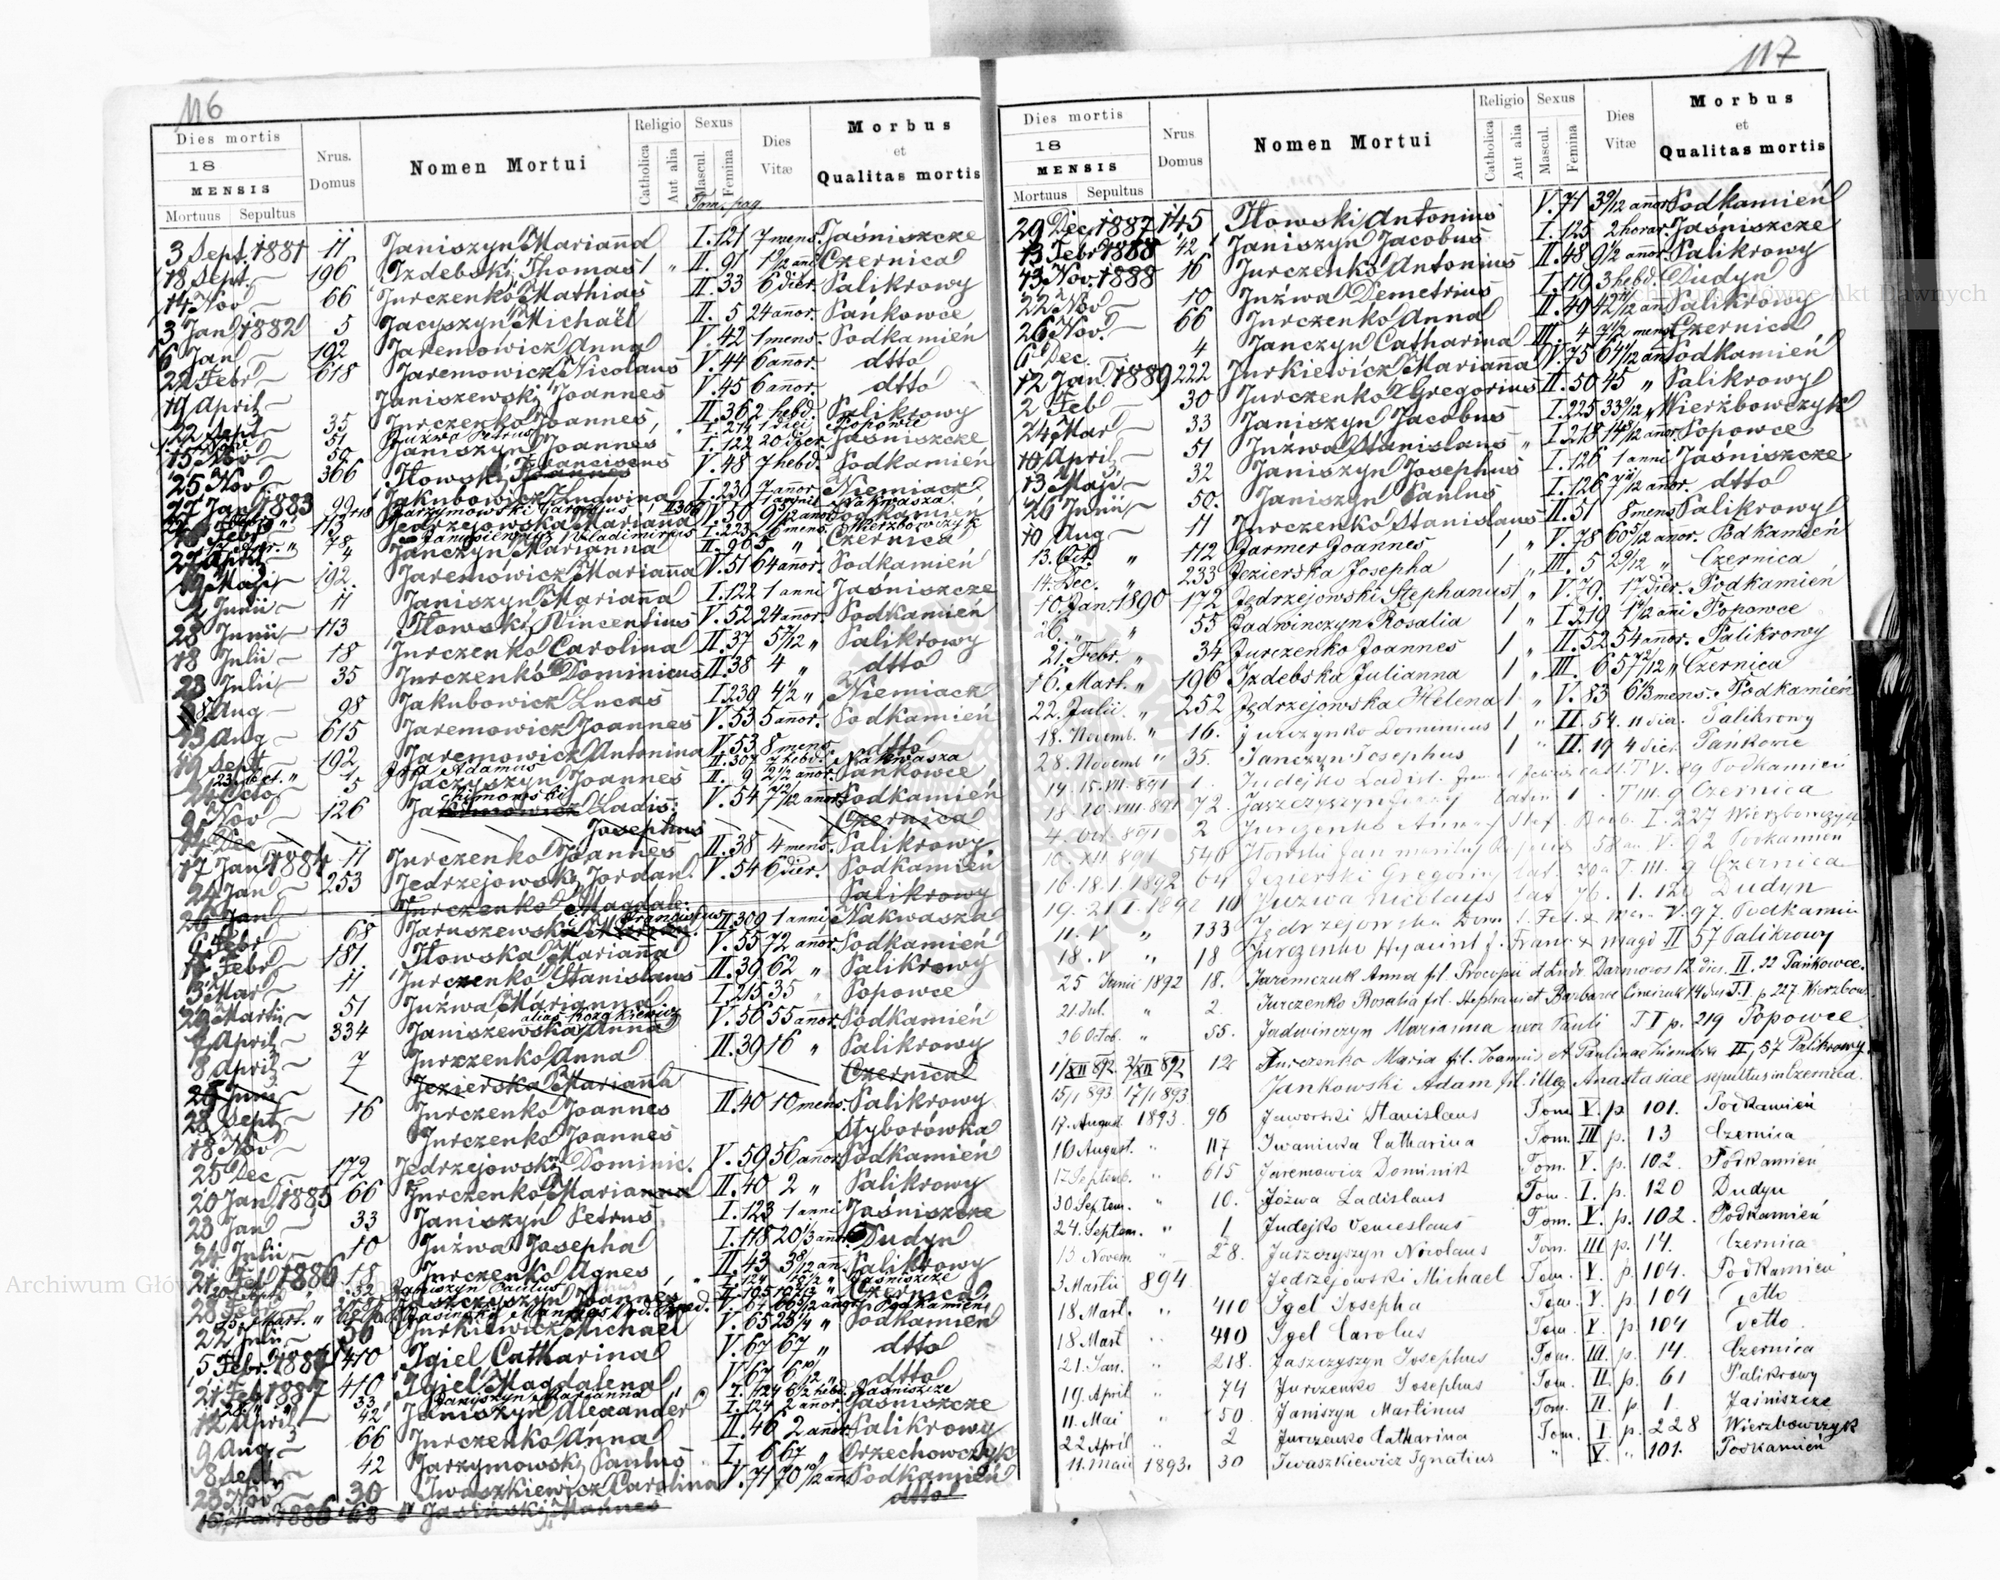 116
Dies mortis
18
MENSIS
Mortuus Sepultus
Nrus. Domus
Nomen Mortui
Religio
Catholica
Aut alia
Sexus
Mascul.
Femina
Dies Vitæ
Morbus et Qualitas mortis
Tom. pag.
3 Sept. 1881 11 Janiszyn Marianna I. 121 7 mens. Jaśniszcze
18 Sept. — 196 Izdebski Thomas 1 " II. 91 1 9/12 anni Czernica
14 Nov — 66 Jurczenko Mathias II. 33 6 dier. Palikrowy
3 Jan 1882 5 Jacyszyn Michael II. 5 24 annor. Pańkowce
6 Jan — 192 Jaremowicz Anna V. 42 1 mens. Podkamień
22 Febr — 618 Jaremowicz Nicolaus V. 44 6 annor. dtto
19 April — Janiszewski Joannes V. 45 6 annor. dtto
22 Sept — 35 Jurczenko Joannes II. 36 2 hebd. Palikrowy
51 Juzwa Petrus I. 214 1 diei Popowce
15 Nov — 50 Janiszyn Joannes I. 122 20 dier. Jaśniszcze
25 Nov — 366 Iłowski Franciscus V. 48 7 hebd. Podkamień
27 Jan 1883 99 Jakubowicz Ludwina I. 230 7 annor. Niemiacz
Febr — 113 Jędrzejowska Marianna V. 50 annor. Podkamień
Janusiewicz Wladimirus I. 223 mens. Wierzbowczyk
27 April — 4 Janczyn Marianna II. 96 5 " Czernica
19 Maji — 192. Jaremowicz Marianna V. 51 64 annor. Podkamień
2 Junii — 11 Janiszyn Marianna I. 122 1 anni Jaśniszcze
28 Junii — 113 Iłowski Vincentius V. 52 24 annor. Podkamień
18 Julii — 18 Jurczenko Carolina II. 37 5 7/12 " Palikrowy
23 Julii — 35 Jurczenko Dominicus II. 38 4 " dtto
8 Aug — 98 Jakubowicz Lucas I. 230 4 1/2 " Niemiacz
13 Aug — 615 Jaremowicz Joannes V. 53 5 annor. Podkamień
19 Sept — 192 Jaremowicz Antonina V. 53 8 mens. dtto
Adamus II. 307 2 hebd. Nakwasza
24 Octo — 5 Jacyszyn Joannes II. 9 2 1/2 annor. Pańkowce
9 Nov — 126 Jachimowski Ladis: V. 54 7 7/12 annor. Podkamień
14 Dec Josephus Czernica
17 Jan 1884 11 Jurczenko Joannes II. 38 4 mens. Palikrowy
24 Jan — 253 Jędrzejowski Jordan. V. 54 6 dier. Podkamień
26 Jan — Jurczenko Magdale. Palikrowy
6 Febr — 68 Jaruszewski Franciscus II. 309 1 anni Nakwasza
12 Febr — 181 Iłowska Marianna V. 55 72 annor. Podkamień
3 Mar — 11 Jurczenko Stanislaus II. 39 62 " Palikrowy
29 Martii — 51 Juzwa Marianna I. 215 35 Popowce
7 April — 334 Janiszewska alias Kozakiewicz Anna V. 56 55 annor. Podkamień
18 April — 7 Jurczenko Anna II. 39 16 " Palikrowy
26 Juni — Jezierska Marianna Czernica
28 Sept — 16 Jurczenko Joannes II. 40 10 mens. Palikrowy
18 Nov — Jurczenko Joannes Styborówka
25 Dec — 172 Jędrzejowski Dominic. V. 59 56 annor. Podkamień
20 Jan 1885 66 Jurczenko Marianna II. 40 2 " Palikrowy
23 Jan — 33 Janiszyn Petrus I. 123 1 anni Jaśniszcze
21 Julii — 10 Juzwa Josepha I. 118 20 1/3 annor. Dudyn
21 Feb 1886 18 Jurczenko Agnes II. 43 38/12 an. Palikrowy
32 Janiszyn Paulus I. 124 Jaśniszcze
28 Febr Jaszczyszyn Joannes Czernica
22 Julii — 56 Jurkiewicz Michael V. 65 Podkamień
5 Febr. 1887 410 Igiel Catharina V. 67 67 " dtto
21 Feb 1887 410 Igiel Magdalena V. 67 6 10/12 " dtto
28 " 33 Janiszyn Marianna I. 124 6 1/2 hebd. Jaśniszcze
12 April — 42 Janiszyn Alexander I. 124 2 annor. Jaśniszcze
9 Aug — 66 Jurczenko Anna II. 46 2 annor Palikrowy
8 Sept — 42 Jarzymowski Paulus I. 6 67 " Orzechowczyk
23 Nov — 30 Iwaszkiewicz Carolina V. 71 70 10/12 ann Podkamień
1886 68 Jasiński Joannes dtto
117
Dies mortis
18
MENSIS
Mortuus Sepultus
Nrus Domus
Nomen Mortui
Religio
Catholica
Aut alia
Sexus
Mascul.
Femina
Dies Vitæ
Morbus et Qualitas mortis
29 Dec. 1887 145 Iłowski Antonius V. 71 39/12 annor Podkamień
13 Febr 1888 42 Janiszyn Jacobus I. 125 2 horar. Jaśniszcze
13 Nov. 1888 16 Jurczenko Antonius II. 48 9 1/2 annor. Palikrowy
22 Nov — 10 Juźwa Demetrius I. 119 3 hebd. Dudyn
26 Nov. — 66 Jurczenko Anna II. 49 42 an. Palikrowy
6 Dec — 4 Janczyn Catharina III. 4 7 1/2 mens. Czernica
12 Jan. 1889 222 Jurkiewicz Marianna V. 75 64 /12 ann Podkamień
2 Feb — 30 Jurczenko Gregorius II. 50 45 " Palikrowy
24 Mar — 33 Janiszyn Jacobus I. 225 33 9/12 " Wierzbowczyk
10 April — 51 Juźwa Stanislaus " I. 218 14 8/12 annor. Popowce
13 Maji — 32 Janiszyn Josephus I. 126 1 anni Jaśniszcze
26 Junii — 50. Janiszyn Paulus I. 126 7 /12 annor. dtto
10 Aug — 11 Jurczenko Stanislaus II. 51 8 mens Palikrowy
13. Oct. " 112 Jarmer Joannes 1 " V. 78 60 5/12 annor. Podkamień
14. Dec. " 233 Jezierska Josepha 1 " III. 5 29/12 " Czernica
10. Jan. 1890 172 Jędrzejowski Stephanus 1 " V. 79. 17 dier. Podkamień
26. " " 55 Jadwinczyn Rosalia 1 " I 219 1 1/2 ani Popowce
21. Febr. " 34 Jurczenko Joannes 1 " II. 52 54 annor. Palikrowy
16. Mart. " 196 Izdebska Julianna 1 " III. 6 57 2/12 " Czernica
22. Julii " 252 Jędrzejowska Helena 1 " V. 83 6 1/3 mens. Podkamień
18. Novemb. " 16. Jurczynko Dominicus 1 " II. 54. 11 dier. Palikrowy
28. Novemb " 35. Janczyn Josephus 1 " II. 19 4 dier Pańkowce
14 15. VII. 891 1 Judejko Ladisl. T V. 89 Podkamień
18 10. VIII. 891 72. Jaszczyszyn T III. 9 Czernica
4. Oct. 891 2 Jurczenko Anna I. 227 Wierzbowczyk
16. XII 891 540 Iłowski V. 92 Podkamień
16. 18. I. 1892. 64 Jezierski Gregorius T. III. 9 Czernica
19. 21 I. 1892 10 Juzwa Nicolaus I. 120 Dudyn
11. V " 133 Jędrzejowski V. 97. Podkamień
18. V " 18 Jurczenko Hyacint f. Franc & Magd II 57 Palikrowy
25 Junii 1892 18. Jaremczuk Anna fil. Procopii et Eudr. Darmoros 12 dies. II. 22 Pańkowce.
21. Jul. " 2. Jurczenko Rosalia fil. Stephani et Barbarae 14 dies T. I. p 227 Wierzbow.
26 Octob. " 55. Jadwinczyn Marianna uxor Pauli T I p. 219 Popowce
1/XII 892 2/XII 892 12 Jurczenko Maria fil. Joannis et Paulinae II, 57 Palikrowy.
15/1 893 17/1 893 Jankowski Adam fil. illeg Anastasiae sepultus in Czernica.
17. August. 1893. 96 Jaworski Stanislaus Tom V. p. 101. Podkamień
10 August. " 117 Iwaniuta Catharina Tom. III p. 13 Czernica
17 Septemb. " 615 Jaremowicz Dominik Tom. V. p. 102. Podkamień
30 Septem. " 10. Józwa Ladislaus Tom. I. p. 120 Dudyn
24. Septem. " 1 Judejko Venceslaus Tom. V. p. 102. Podkamień
13 Novem. " 28. Juszczyszyn Nicolaus Tom. III p. 14. Czernica
3 Martii 894. Jędrzejowski Michael Tom. V. p. 104. Podkamień
18 Mart. " 410 Igel Josepha Tom. V. p. 104 Detto
18 Mart " 410 Igel Carolus Tom. V. p. 104 Detto
21. Jan. " 218. Jaszczyszyn Josephus Tom. III. p. 14. Czernica
19. April " 74 Jurczenko Josephus Tom. II. p. 61 Palikrowy
11. Mai " 50. Janiszyn Martinus Tom. II. p 1. Jaśniszcze
22 April " 2 Jurczenko Catharina Tom. I. p. 228 Wierzbowczyk
11. Maii 1893. 30 Iwaszkiewicz Ignatius " V. " 101. Podkamień